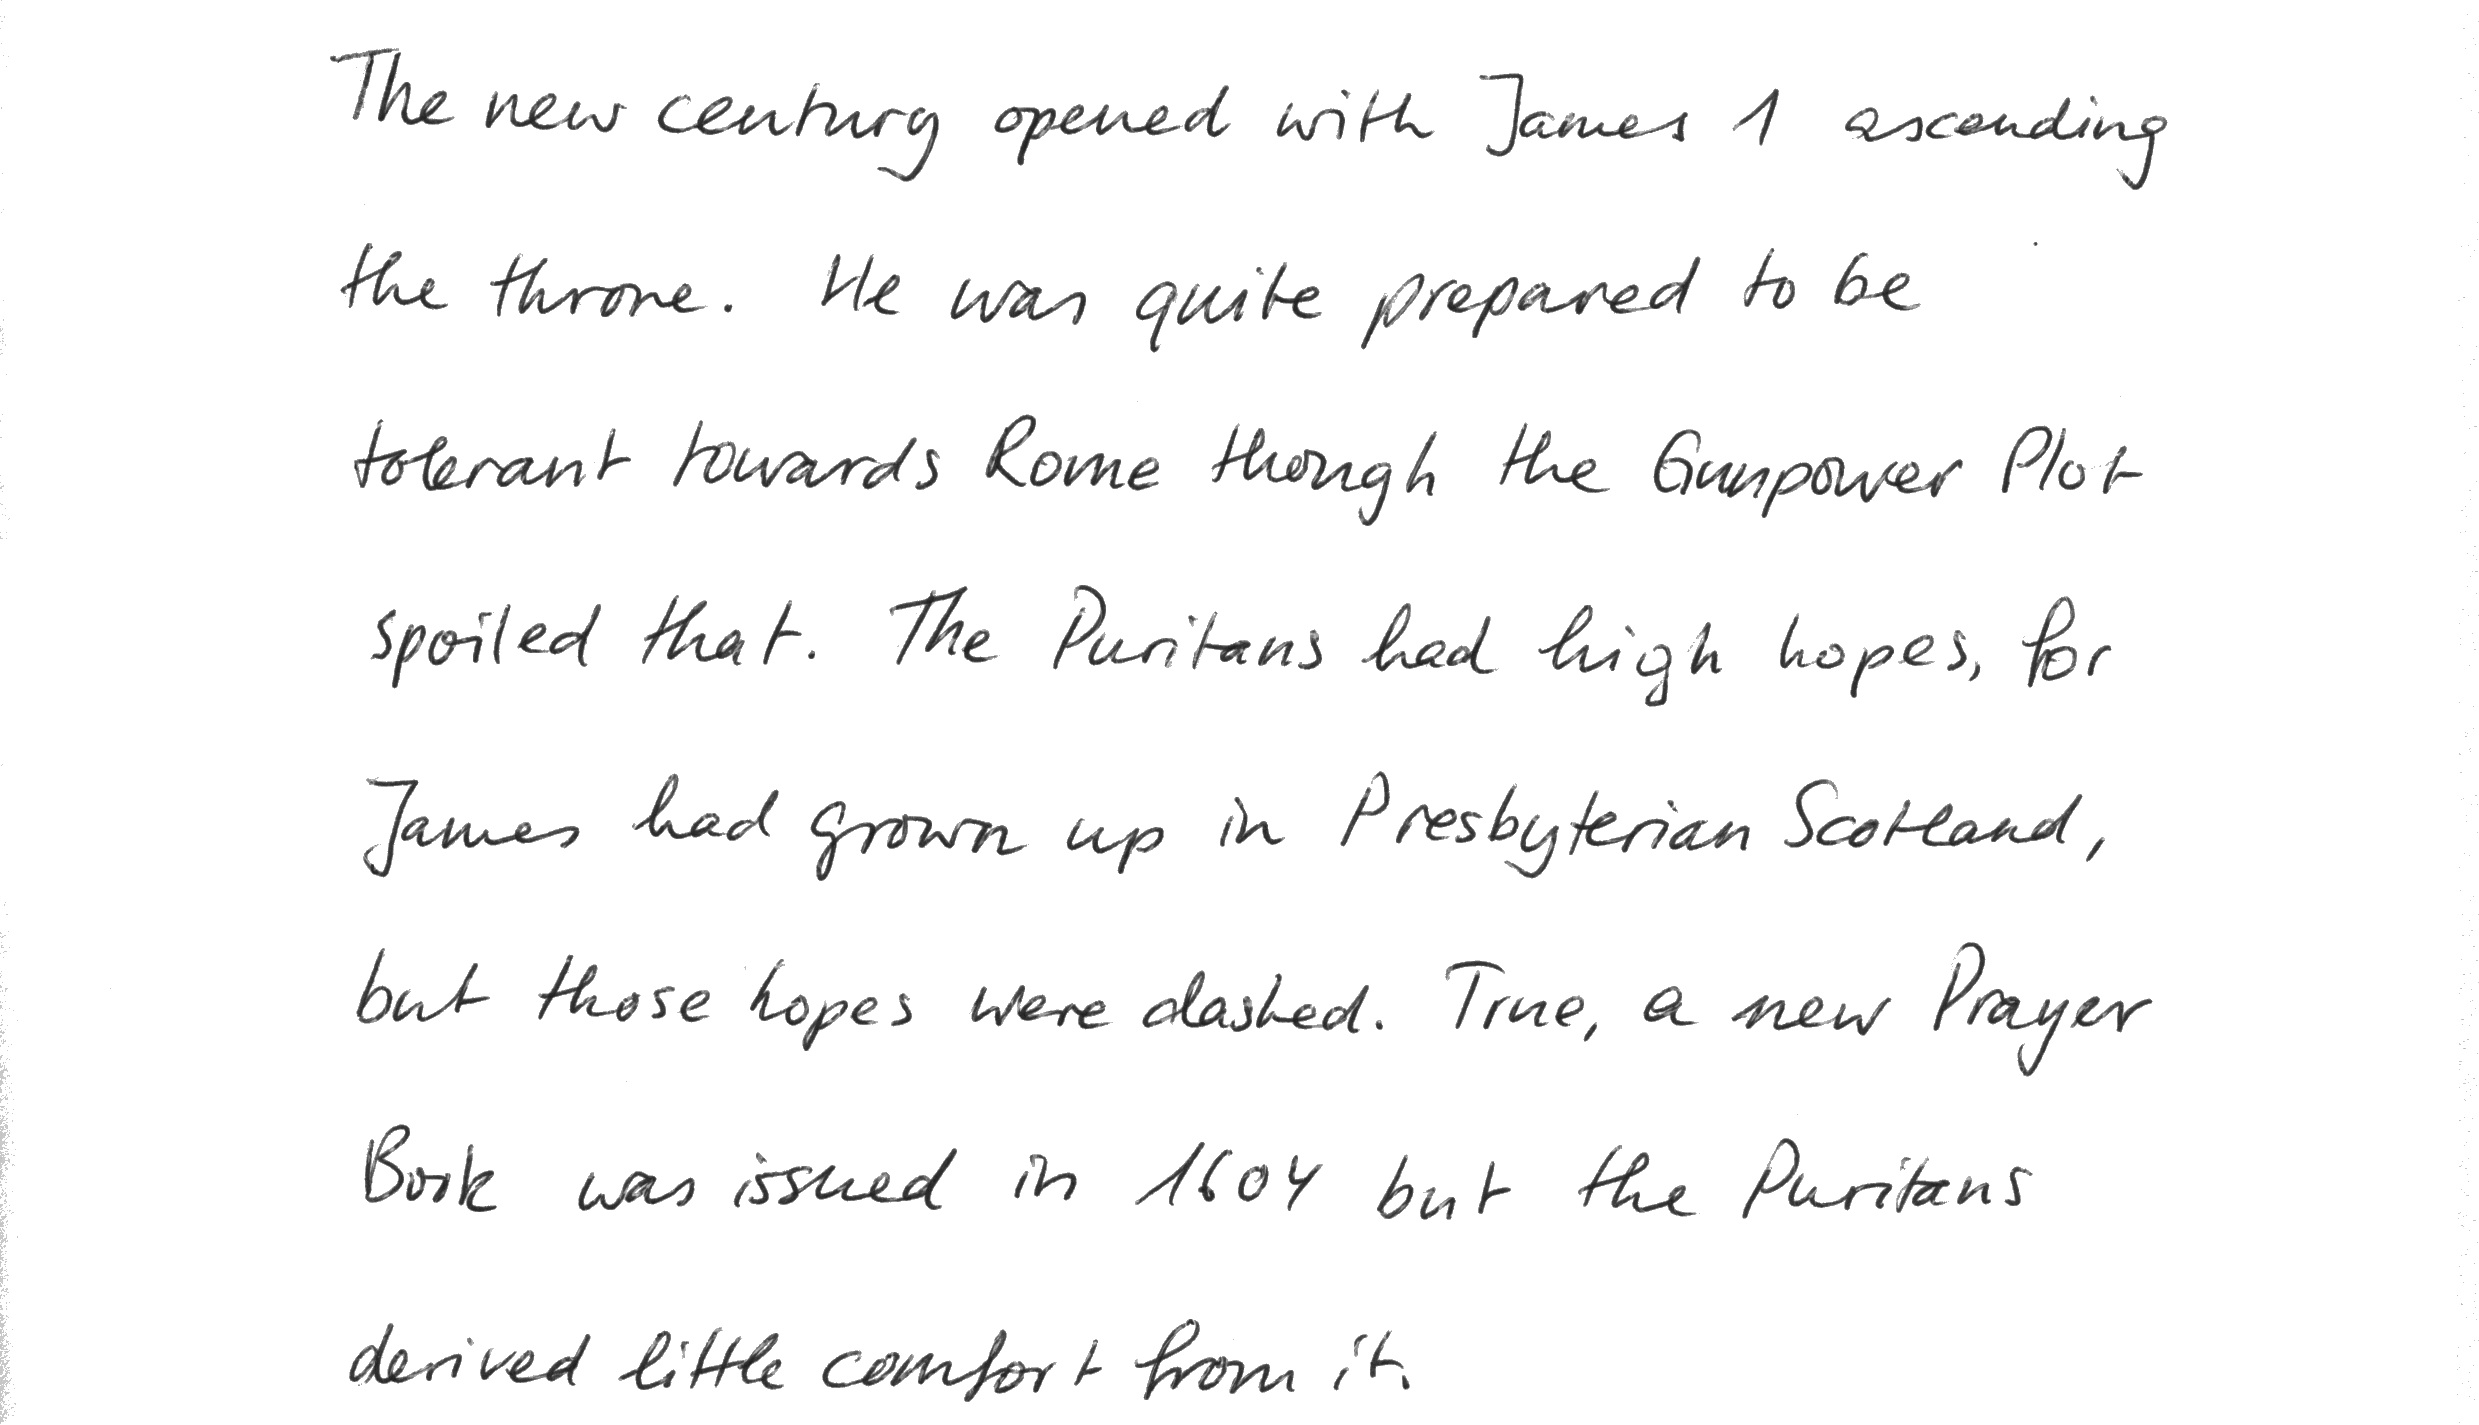 The new century opened with James 1 ascending
the throne. He was quite prepared to be
tolerant towards Rome though the Gunpower Plot
spoiled that. The Puritans had high hopes, for
James had grown up in Presbyterian Scotland,
but those hopes were dashed. True, a new Prayer
Book was issued in 1604 but the Puritans
derived little comfort from it.